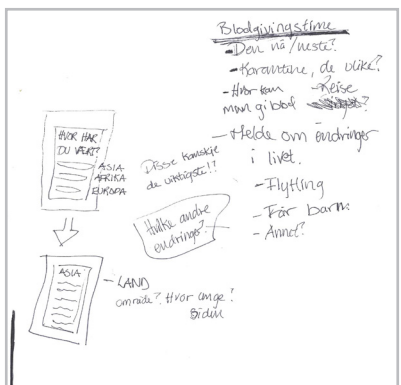 Blodgivingstime
- Den nå/neste?
- Karantene, de ulike?
- Hvor kan - Reise
man gi blod ?
- Melde om endringer
i livet.
- Flytting
- Får barn
- Annet?
HVOR HAR
DU VÆRT?
ASIA
AFRIKA
EUROPA
Disse kanskje
de viktigste!?
Hvilke andre
endringer?
ASIA
- LAND
område? Hvor lenge?
Siden